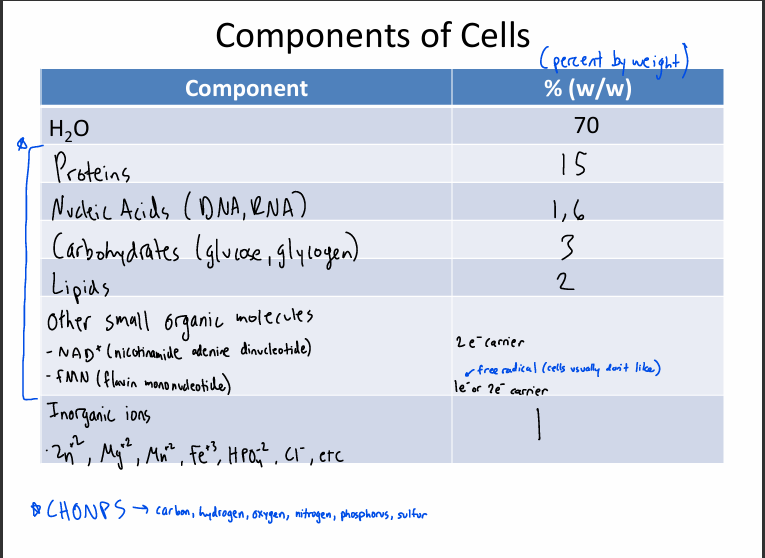 Components of Cells
(percent by weight)
Component % (w/w)
H₂O 70
Proteins 15
Nucleic Acids (DNA, RNA) 1,6
Carbohydrates (glucose, glycogen) 3
Lipids 2
Other small organic molecules
- NAD⁺ (nicotinamide adenine dinucleotide) 2e⁻ carrier
free radical (cells usually don't like)
- FMN (flavin mononucleotide) 1e⁻ or 2e⁻ carrier
Inorganic ions 1
· Zn⁺², Mg⁺², Mn⁺², Fe⁺³, HPO₄⁻², Cl⁻, etc
CHONPS → carbon, hydrogen, oxygen, nitrogen, phosphorus, sulfur